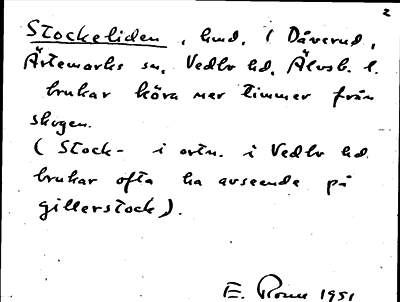 2
Stockeliden, hmd. i Dåverud,
Ärtemarks sn, Vedbo hd, Älvsb. l.
brukar köra ner timmer från
skogen.
(Stock- i ortn. i Vedbo hd
brukar ofta ha avseende på
gillerstock).
E. 1951